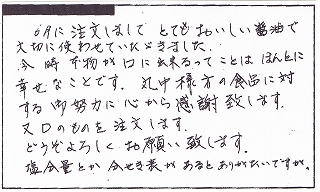 6月に注文しまして とてもおいしい醤油で
大切に使わせていただきました。
今時 本物が口に出来るってことは ほんとに
幸せなことです。丸中様方の食品に対
する御努力に心から感謝致します。
又口のものを注文します。
どうぞよろしくお願い致します。
塩分量とか 分せき表が あるとありがたいですが。